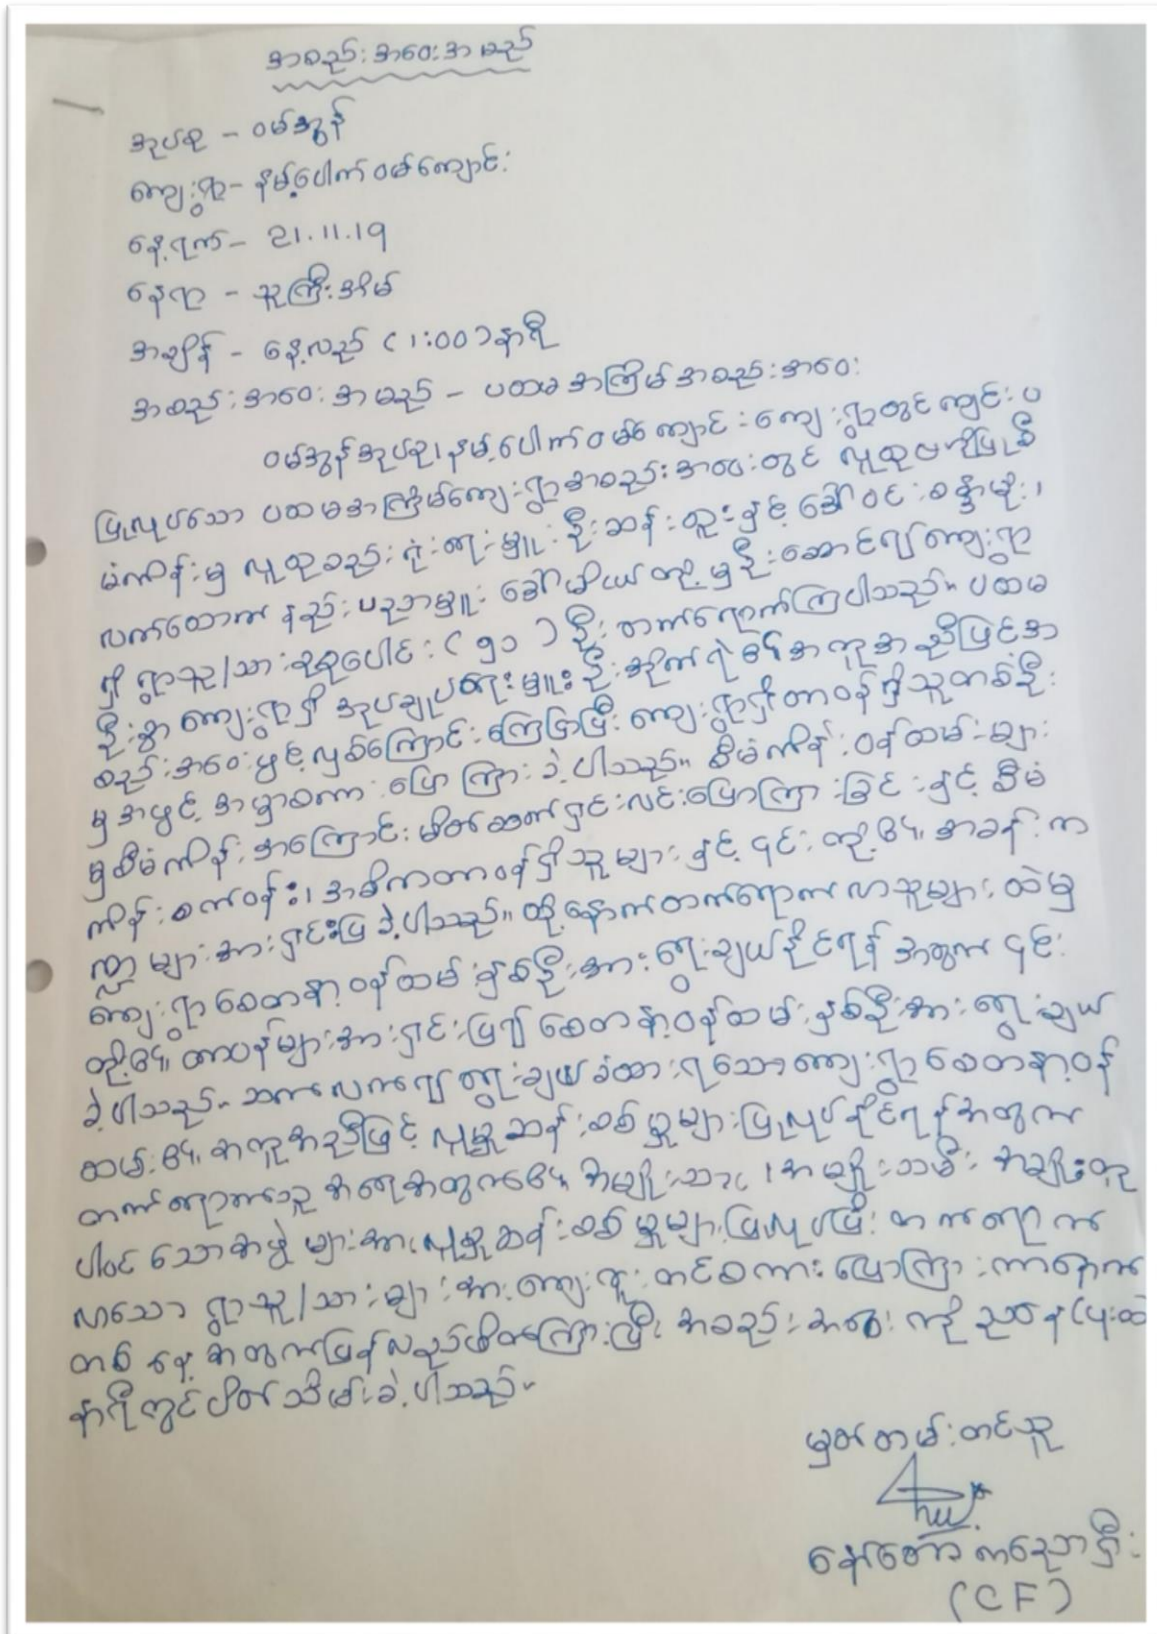 အစည်းအဝေးအမည်
အုပ်စု - ဝမ်အွန်
ကျေးရွာ - နမ့်ပေါက်ဝမ်ကျောင်း
နေ့ရက် - 21.11.19
နေရာ - သူကြီးအိမ်
အချိန် - နေ့လည် (1:00) နာရီ
အစည်းအဝေးအမည် - ပထမအကြိမ်အစည်းအဝေး
ဝမ်အွန်အုပ်စု၊ နမ့်ပေါက်ဝမ်ကျောင်းကျေးရွာတွင်ကျင်းပ
ပြုလုပ်သော ပထမအကြိမ်ကျေးရွာအစည်းအဝေးတွင် လူထုဗဟိုပြုစီ
မံကိန်းမှ လူထုစည်းရုံးရေးမှူး ဦးဆန်းထူးနှင့် ဒေါ်ဝင်းစန္ဒာမိုး၊
လက်ထောက်နည်းပညာမှူး တို့မှဦးဆောင်၍ကျေးရွာ
ရှိ ရွာသူ/သားစုစုပေါင်း (၅၁) ဦး တက်ရောက်ကြပါသည်။ ပထမ
ဦးစွာ ကျေးရွာရှိ အုပ်ချုပ်ရေးမှူး ဦးအိုက်ရဲ ၏အကူအညီဖြင့်အ
စည်းအဝေးဖွင့်လှစ်ကြောင်းကြေငြာပြီး ကျေးရွာရှိတာဝန်ရှိသူတစ်ဦး
မှ အဖွင့်အမှာစကား ပြောကြားခဲ့ပါသည်။ စီမံကိန်းဝန်ထမ်းများ
မှစီမံကိန်းအကြောင်း မိတ်ဆက်ရှင်းလင်းပြောကြားခြင်းနှင့် စီမံ
ကိန်းစက်ဝန်း၊ အဓိကတာဝန်ရှိသူများနှင့် ၎င်းတို့၏ အခန်းက
ဏ္ဍများအားရှင်းပြခဲ့ပါသည်။ ထို့နောက်တက်ရောက်လာသူများထဲမှ
ကျေးရွာစေတနာ့ဝန်ထမ်းနှစ်ဦးအားရွေးချယ်နိုင်ရန်အတွက် ၎င်း
တို့၏ တာဝန်များအားရှင်းပြ၍ စေတနာ့ဝန်ထမ်းနှစ်ဦးအား ရွေးချယ်
ခဲ့ပါသည်။ ဆက်လက်၍ရွေးချယ်ခံထားရသောကျေးရွာစေတနာ့ဝန်
ထမ်း၏ အကူအညီဖြင့် လူမှုဆန်းစစ်မှုများပြုလုပ်နိုင်ရန်အတွက်
တက်ရောက်သူ အရေအတွက်၏ အမျိုးသား၊ အမျိုးသမီး အချိုးတူ
ပါဝင်သောအဖွဲ့များအား လူမှုဆန်းစစ်မှုများပြုလုပ်ပြီး တက်ရောက်
လာသော ရွာသူ/သားများအား ကျေးဇူးတင်စကားပြောကြားကာနောက်
တစ်နေ့အတွက်ပြန်လည်ဖိတ်ကြားပြီး အစည်းအဝေးကိုညနေ
နာရီတွင်ပိတ်သိမ်းခဲ့ပါသည်။
မှတ်တမ်းတင်သူ
(CF)